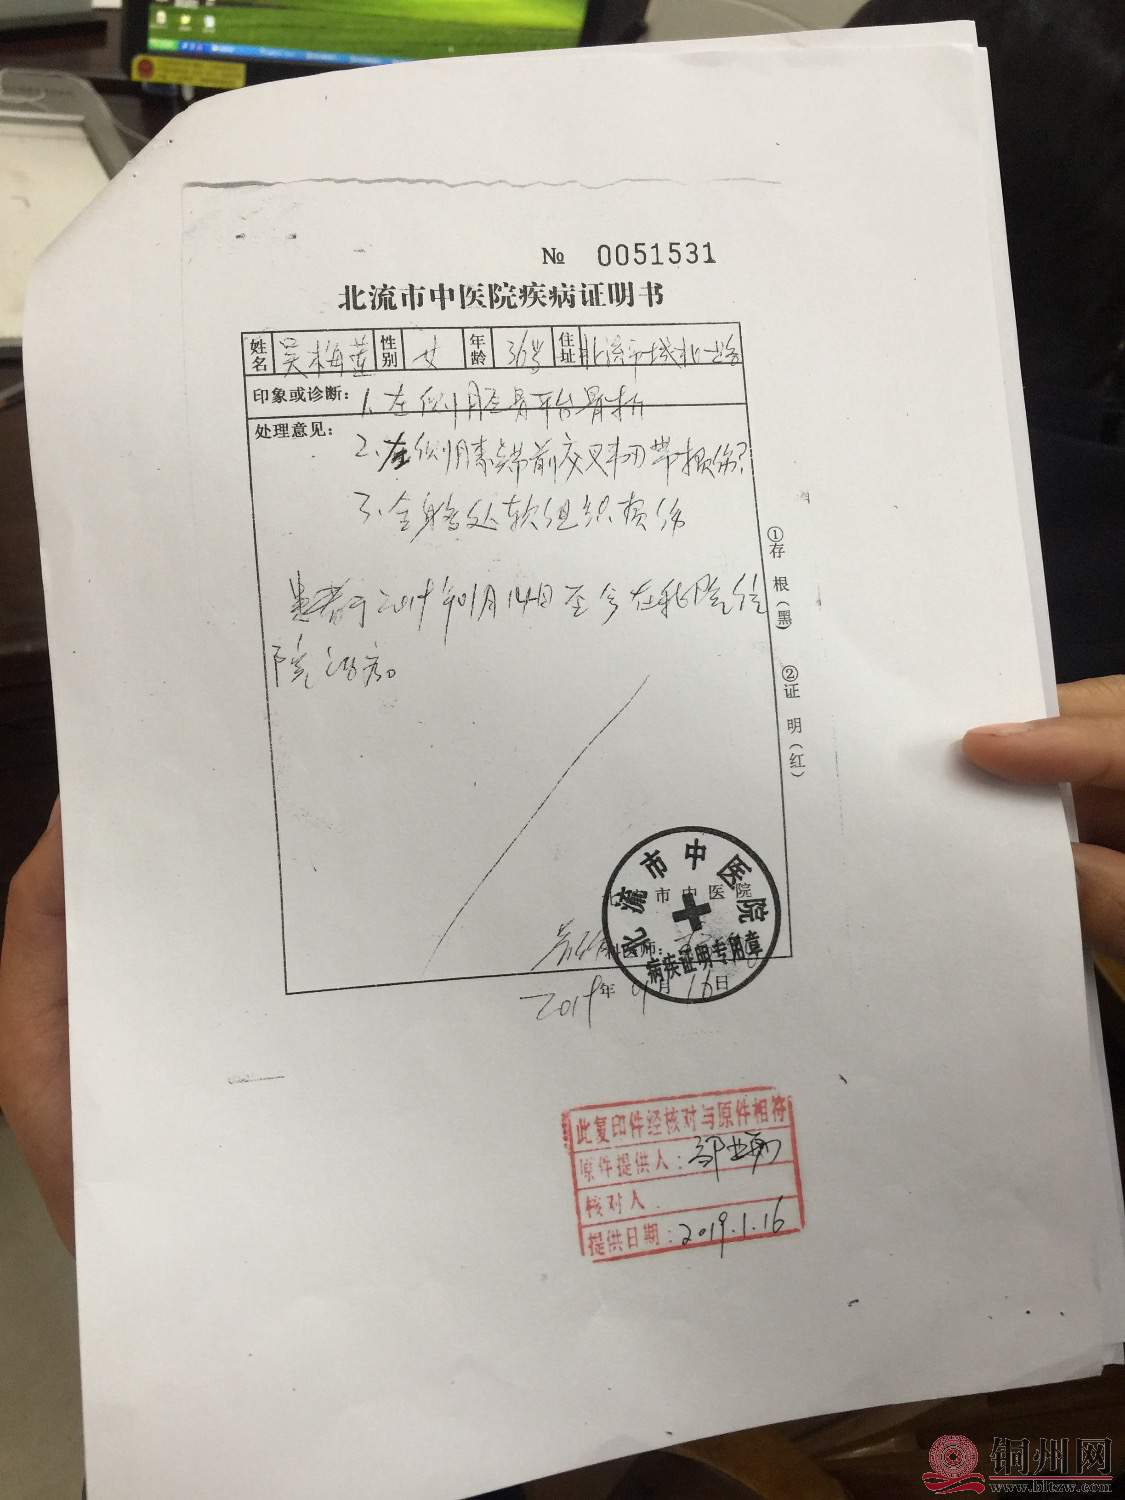 № 0051531
北流市中医院疾病证明书
姓名 吴梅 性别 女 年龄 36岁 住址 北流市城北一路
印象或诊断：1、左侧胫骨平台骨折
处理意见：
2、左侧膝关节前交叉韧带损伤？
3、全身多处软组织损伤
患者于2019年01月14日至今在我院住
院治疗。
①存根（黑）
②证明（红）
北流市中医院
科医师：
2019年 月16日
北流市中医院
病疾证明专用章
此复印件经核对与原件相符
原件提供人：
核对人
提供日期：2019.1.16
铜州网
www.bltzw.com